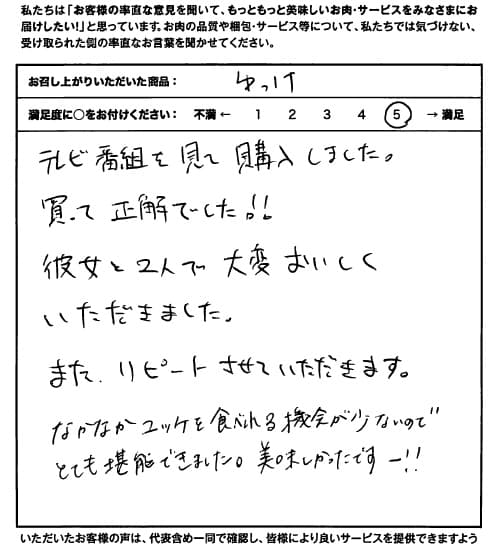 私たちは「お客様の率直な意見を聞いて、もっともっと美味しいお肉・サービスをみなさまにお
届けしたい！」と思っています。お肉の品質や梱包・サービス等について、私たちでは気づけない、
受け取られた側の率直なお言葉を聞かせてください。
お召し上がりいただいた商品： ゆっけ
満足度に○をお付けください： 不満 ← 1 2 3 4 5 → 満足
テレビ番組を見て購入しました。
買って正解でした!!
彼女と2人で大変おいしく
いただきました。
また、リピートさせていただきます。
なかなかユッケを食べれる機会が少ないので
とても堪能できました。美味しかったですー!!
いただいたお客様の声は、代表含め一同で確認し、皆様により良いサービスを提供できますよう